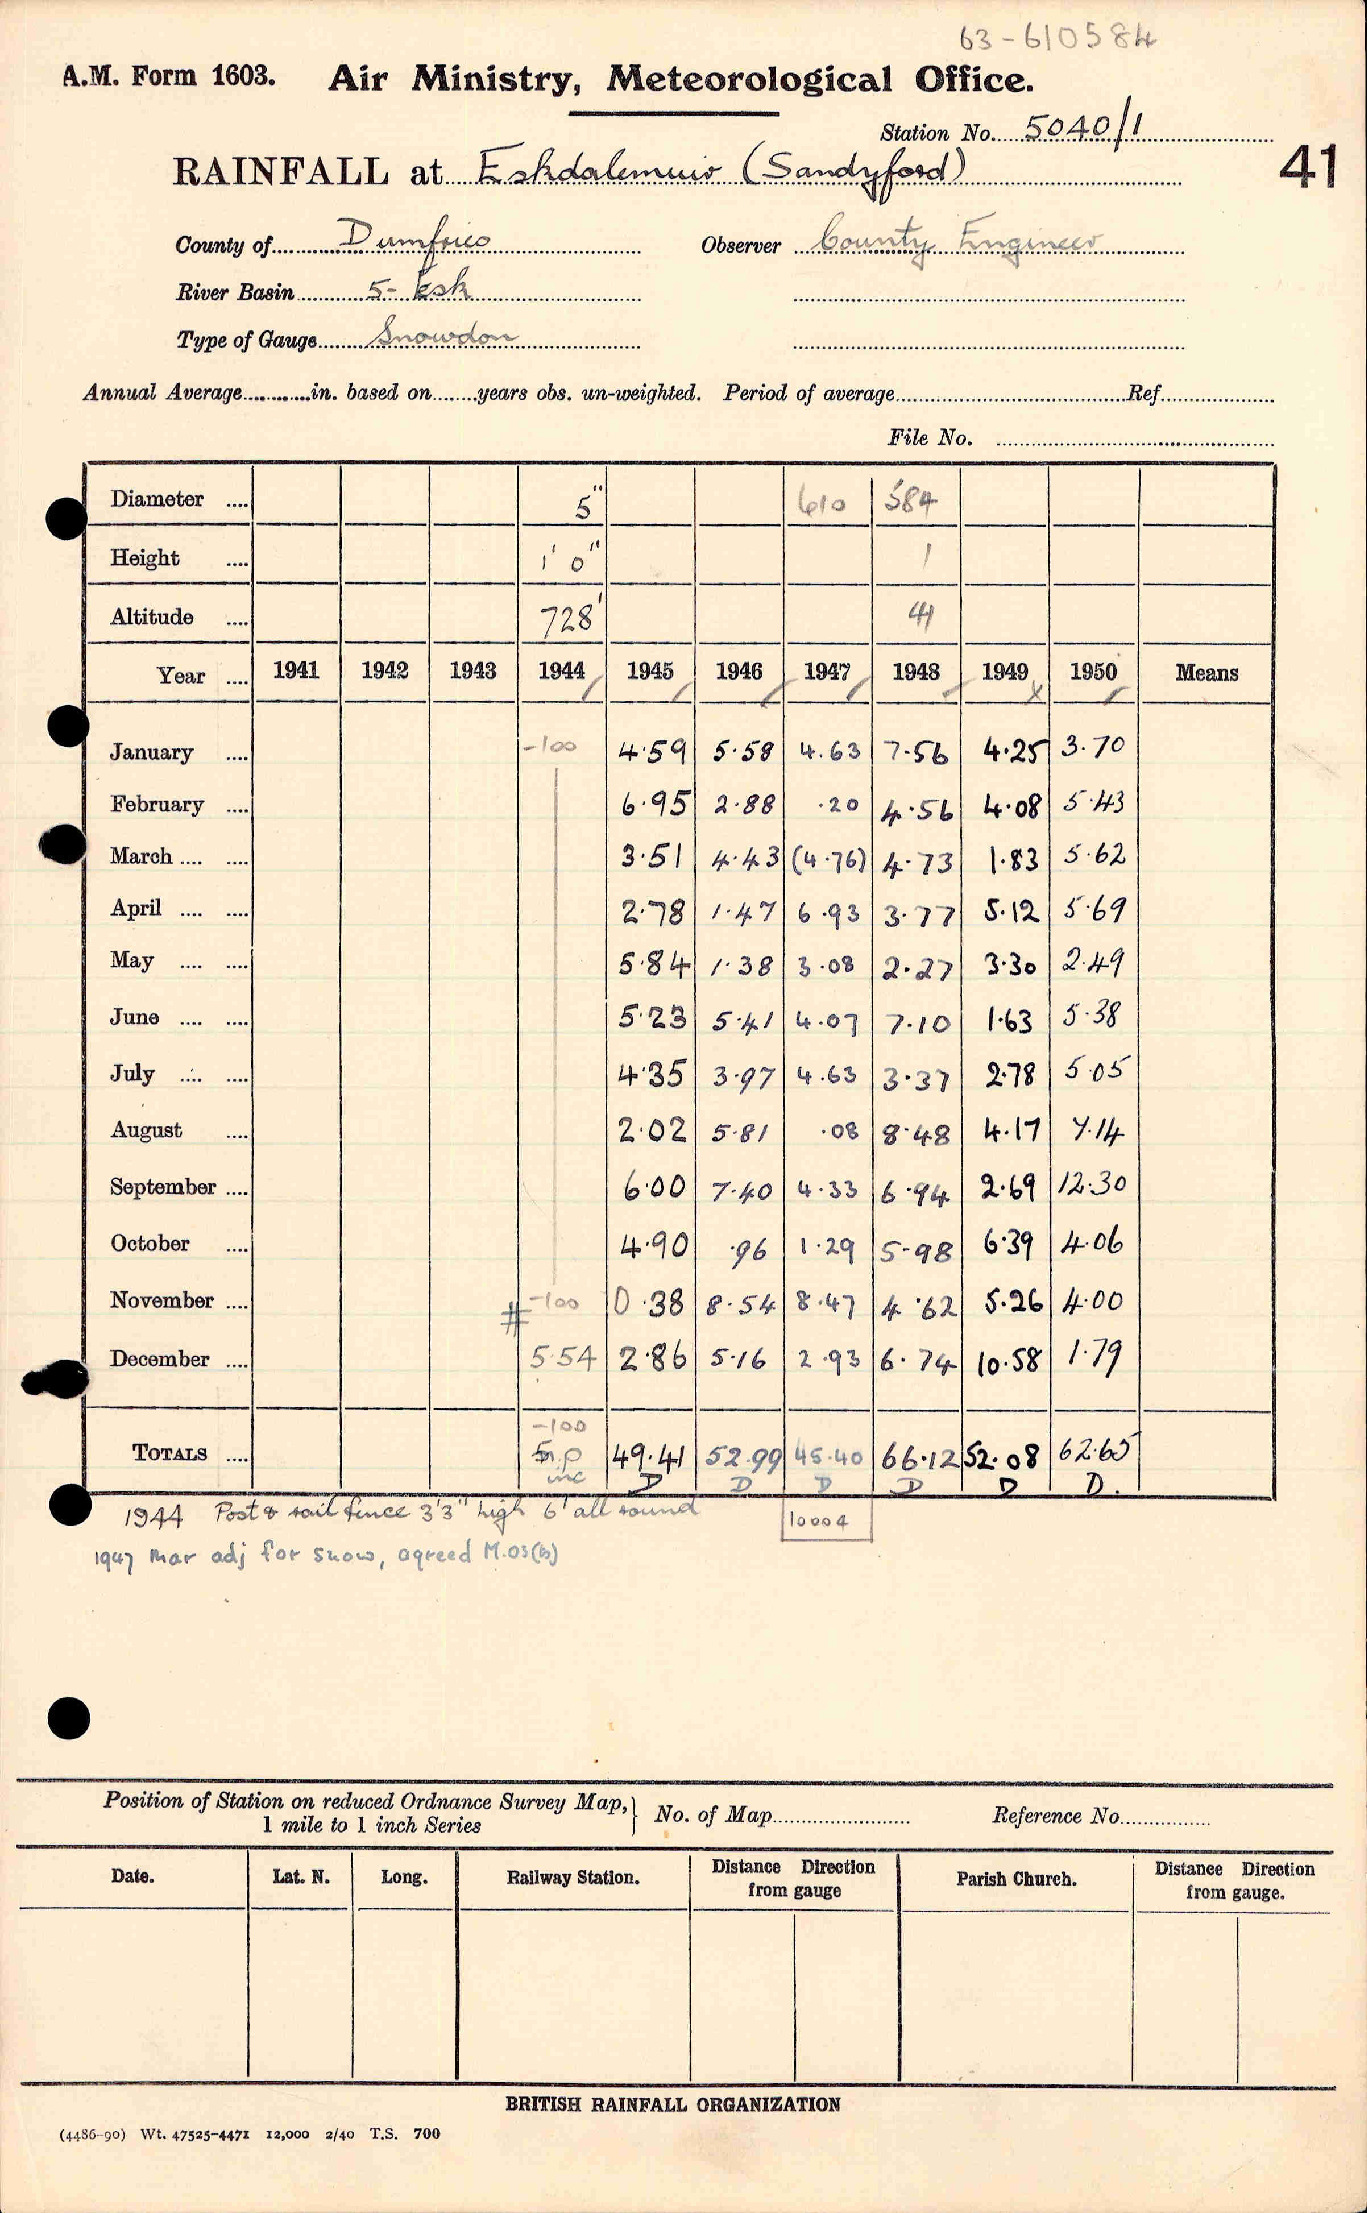 63-610584
A.M. Form 1603. Air Ministry, Meteorological Office.
Station No. 5040/1
RAINFALL at Eskdalemuir (Sandyford) 41
County of Dumfries Observer County Engineer
River Basin 5- Esk
Type of Gauge Snowdon
Annual Average............in. based on........years obs. un-weighted. Period of average Ref.
File No.
Diameter .... 5" 610 584
Height .... 1' 0" 1
Altitude .... 728' 41
Year .... 1941 1942 1943 1944 1945 1946 1947 1948 1949 1950 Means
January .... -100 4.59 5.58 4.63 7.56 4.25 3.70
February .... 6.95 2.88 .20 4.56 4.08 5.43
March .... .... 3.51 4.43 (4.76) 4.73 1.83 5.62
April .... .... 2.78 1.47 6.93 3.77 5.12 5.69
May .... .... 5.84 1.38 3.08 2.27 3.30 2.49
June .... .... 5.23 5.41 4.07 7.10 1.63 5.38
July .... .... 4.35 3.97 4.63 3.37 2.78 5.05
August .... 2.02 5.81 .08 8.48 4.17 7.14
September .... 6.00 7.40 4.33 6.94 2.69 12.30
October .... 4.90 .96 1.29 5.98 6.39 4.06
November .... # -100 0.38 8.54 8.47 4.62 5.26 4.00
December .... 5.54 2.86 5.16 2.93 6.74 10.58 1.79
-100
TOTALS .... 49.41 52.99 45.40 66.12 52.08 62.65
inc D D D D D D.
1944 Post & rail fence 3'3" high 6' all round 10004
1947 Mar adj for snow, agreed M.O3(b)
Position of Station on reduced Ordnance Survey Map, 1 mile to 1 inch Series } No. of Map Reference No.
Date. Lat. N. Long. Railway Station. Distance Direction from gauge Parish Church. Distance Direction from gauge.
BRITISH RAINFALL ORGANIZATION
(4486-90) Wt. 47525-4471 12,000 2/40 T.S. 700